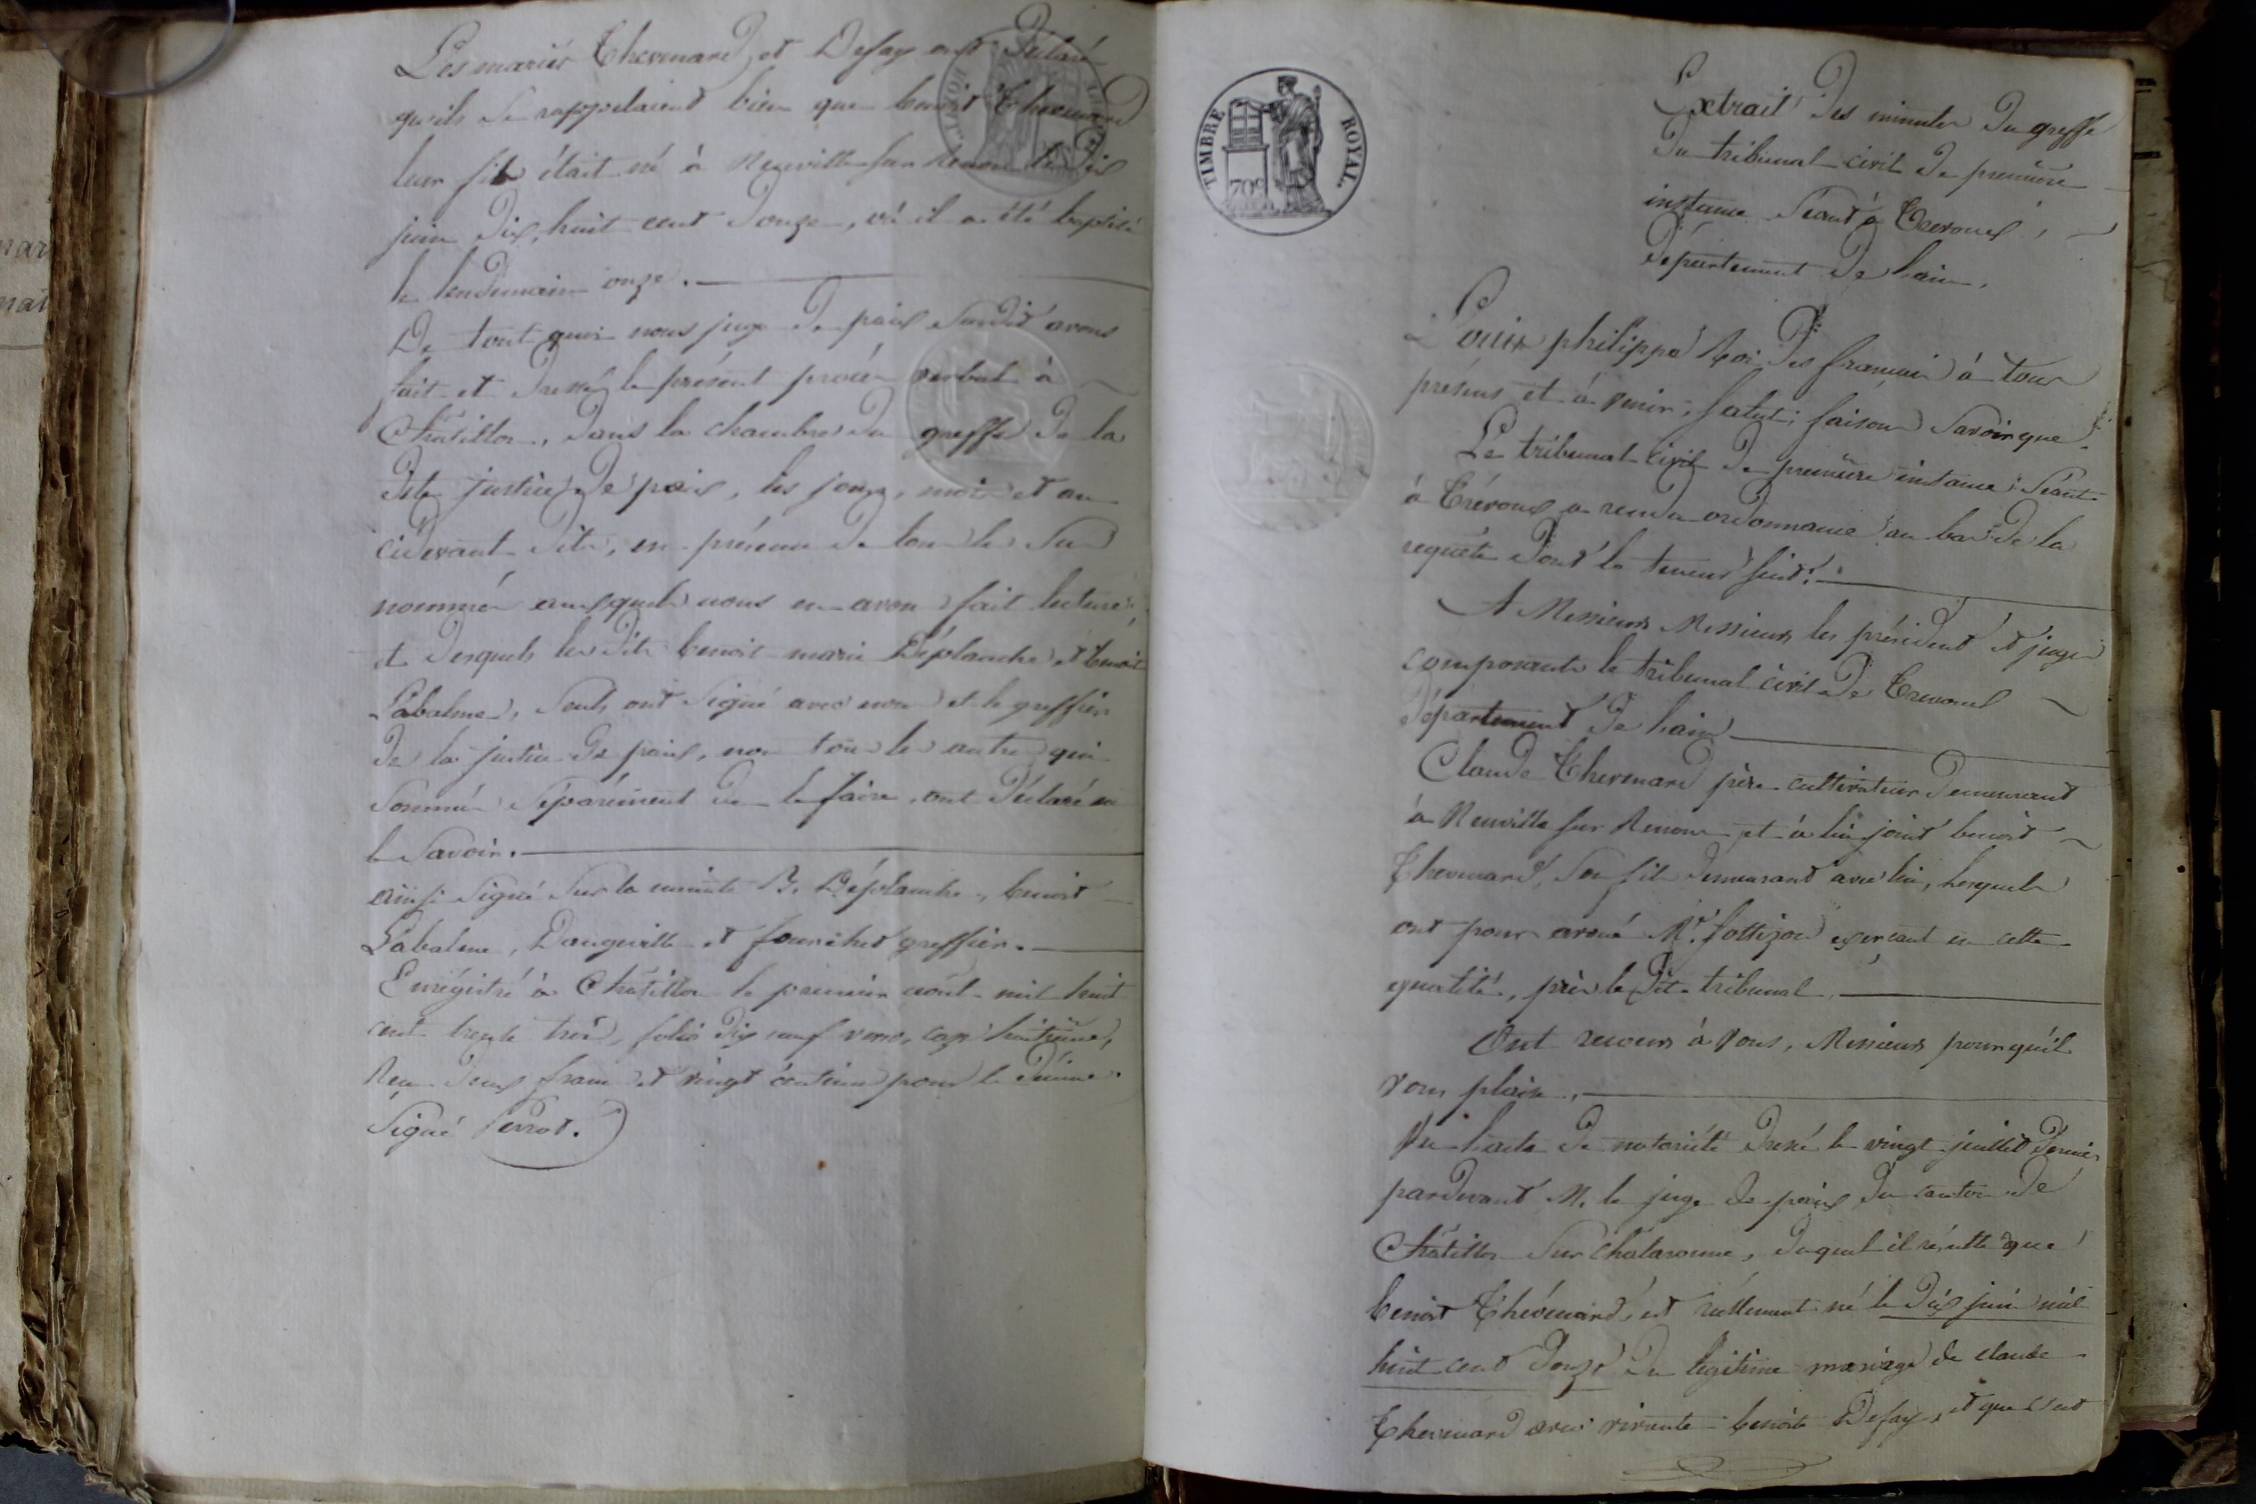 Les mariés Thevenard et Defay ont déclaré
qu'ils se rappelaient bien que benoit Thevenard
leur fils était né à Neuville sur Renom le dix
juin dix huit cent douze, où il a été baptisé
le lendemain onze.
De tout quoi nous juge de paix susdit avons
fait et dressé le présent procès verbal à
Chatillon, dans la chambre du greffe de la
dite justice de paix, les jour, mois et an
cidevant dits, en présence de tous les sus
nommés auxquels nous en avons fait lecture,
et desquels les dits benoit marie Déplanche et benoit
Labalme, seuls ont signé avec nous et le greffier
de la justice de paix, non tous les autres qui
sommés séparément de le faire, ont déclaré ne
le savoir.
ainsi signé sur la minute B. Déplanche, benoit
Labalme, Dangeville et fourchet greffier.
Enrégistré à Chatillon le premier août mil huit
cent trente trois, folio dix neuf verso, case huitième,
Reçu deux francs et vingt centimes pour le dixième.
Signé Perrot.
TIMBRE ROYAL.
70c
Extrait des minutes du greffe
du tribunal civil de première
instance séant à Trévoux,
département de l'ain.
Louis philippe Roi des français à tous
présens et à venir, salut; faisons savoir que
Le tribunal civil de première instance séant
à Trévoux a rendu ordonnance au bas de la
requête dont la teneur suit:
A Messieurs Messieurs les président et juges
composants le tribunal civil de Trevoux
département de l'ain
Claude Thevenard père cultivateur demeurant
à Neuville sur Renom et à lui joint benoit
Thevenard, son fils demeurant avec lui, lesquels
ont pour avoué Mr. exerçant en cette
qualité, près le dit tribunal.
Ont recours à vous, Messieurs pour qu'il
vous plaise,
Vu l'acte de notoriété dressé le vingt juillet dernier
pardevant M. le juge de paix du canton de
Chatillon sur Chalaronne, duquel il résulte que
benoit Thévenard, est réellement né le dix juin mil
huit cent douze du légitime mariage de claude
Thevenard avec vivante benoite Defay, et que c'est